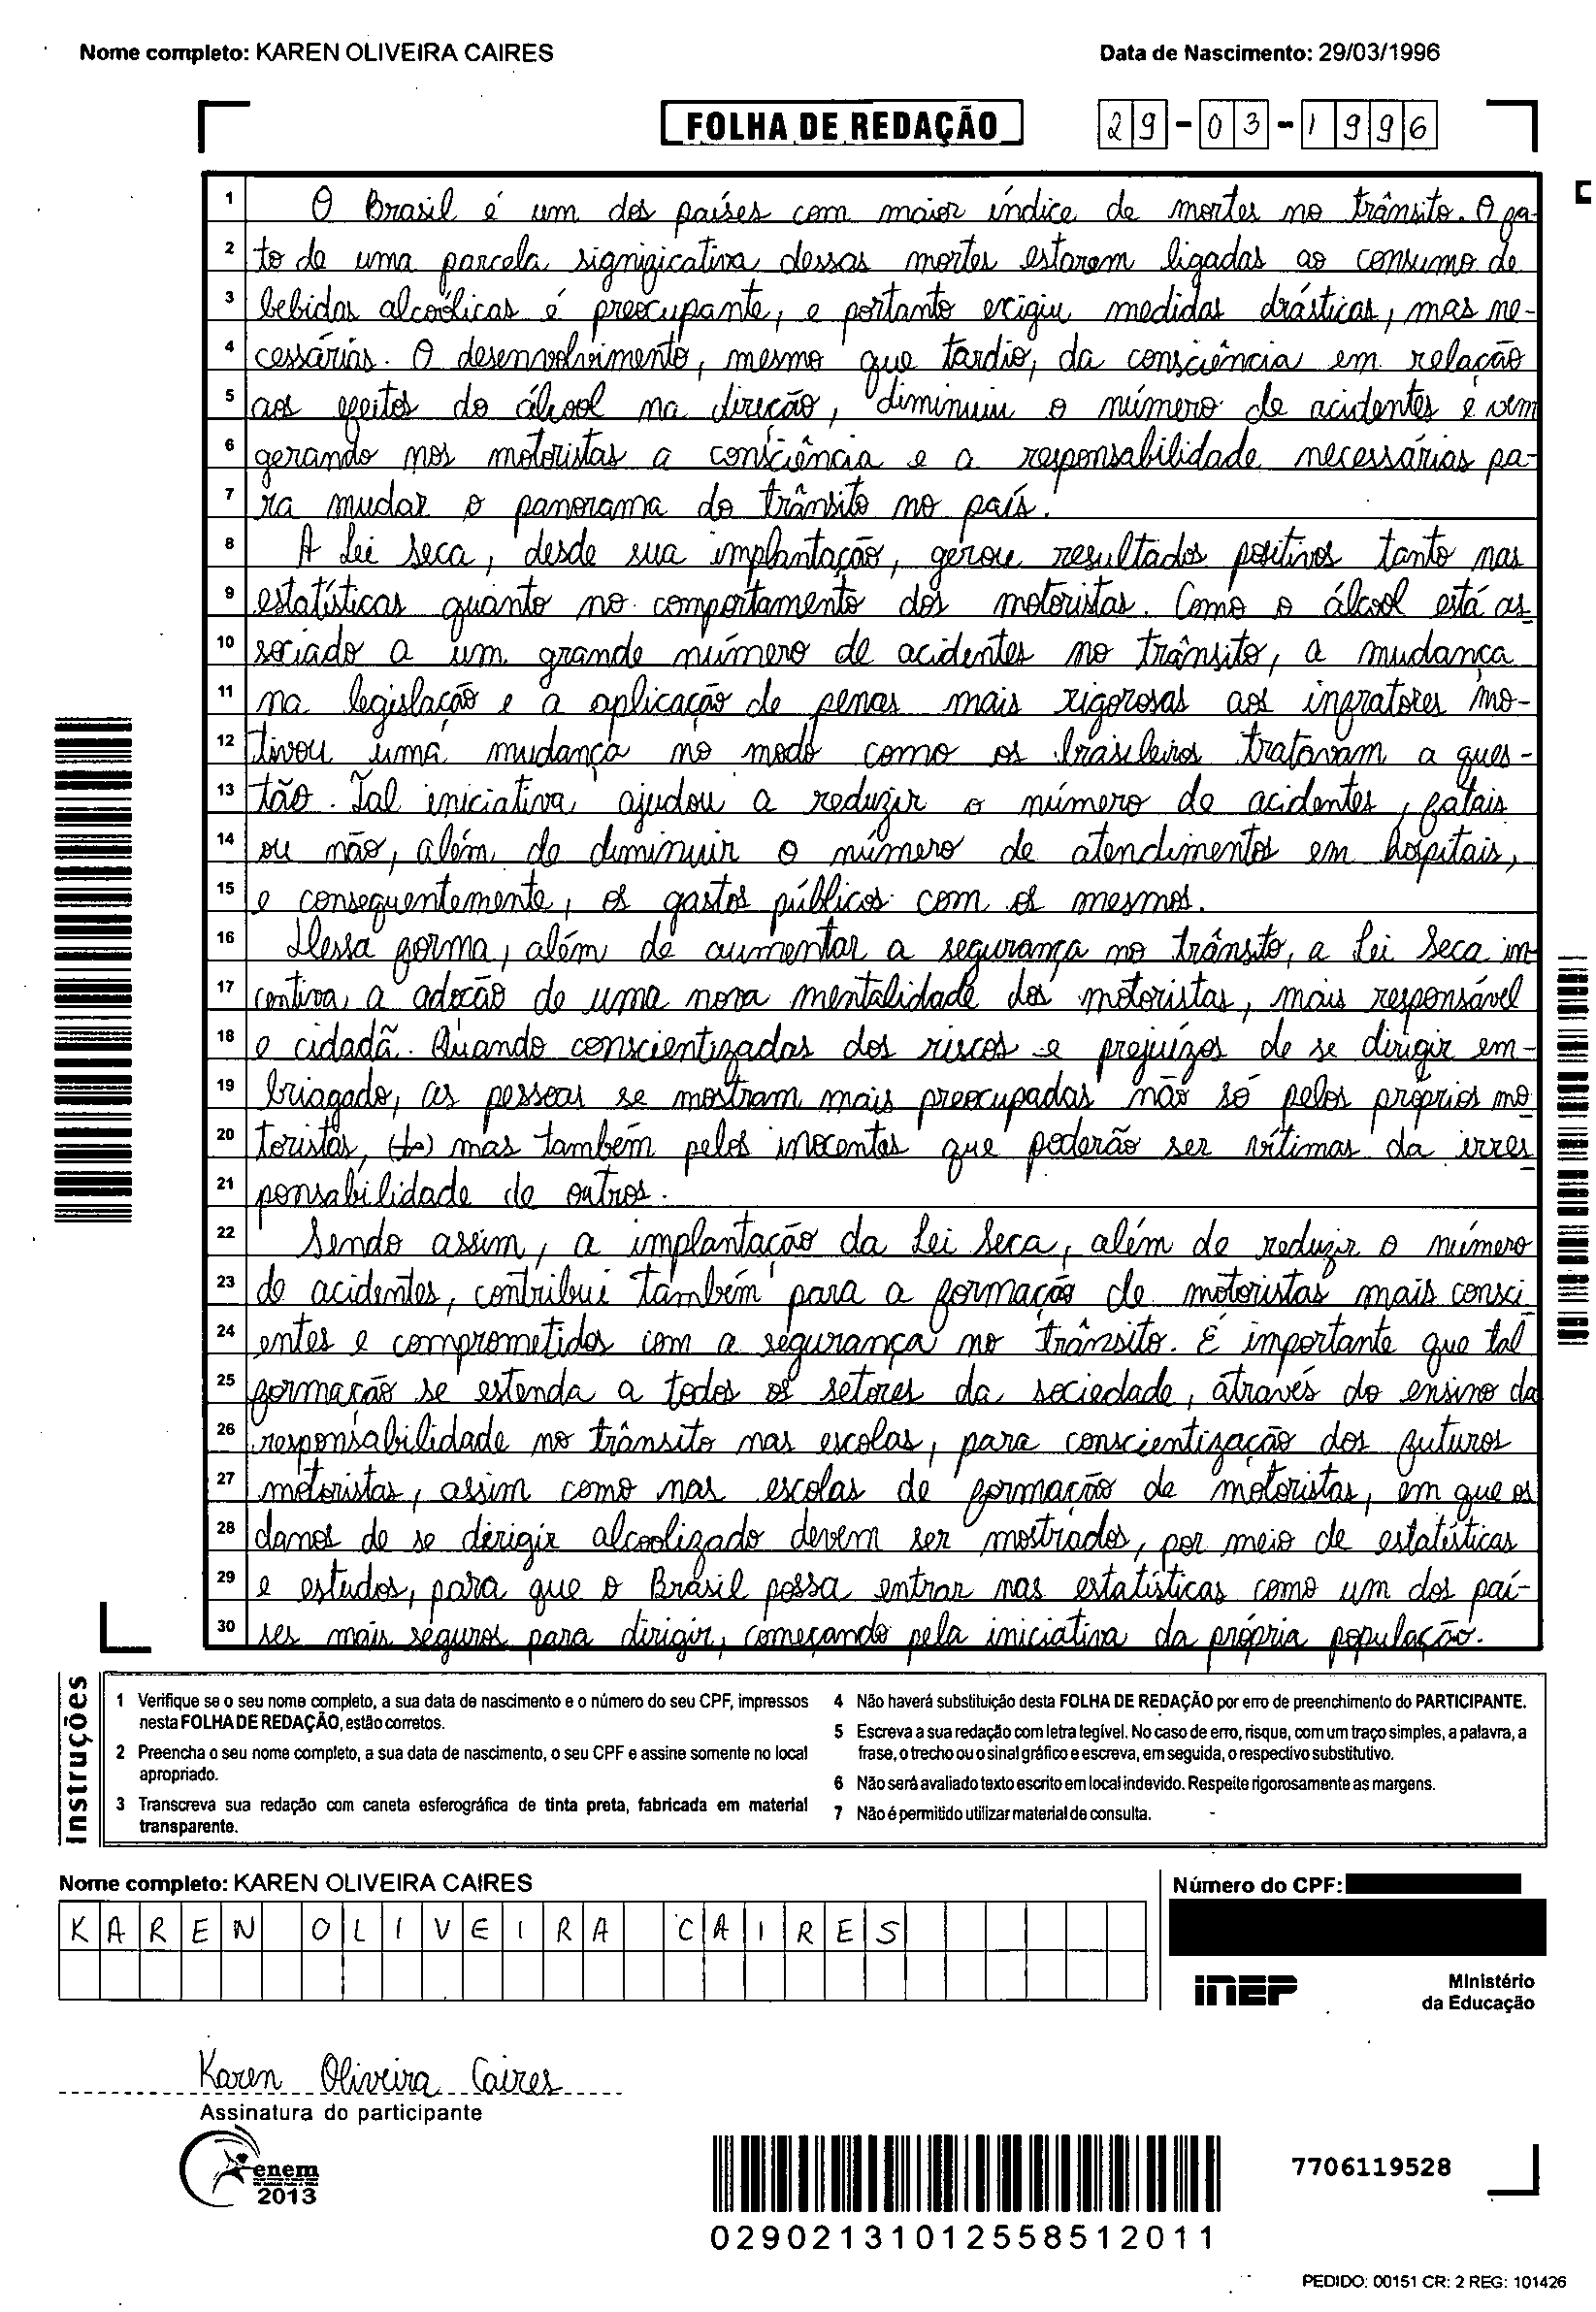 Nome completo: KAREN OLIVEIRA CAIRES
Data de Nascimento: 29/03/1996
FOLHA DE REDAÇÃO
29-03-1996
1 O Brasil é um dos países com maior índice de mortes no trânsito. O fa-
2 to de uma parcela significativa dessas mortes estarem ligadas ao consumo de
3 bebidas alcoólicas é preocupante, e portanto exigiu medidas drásticas, mas ne-
4 cessárias. O desenvolvimento, mesmo que tardio, da consciência em relação
5 aos efeitos do álcool na direção, diminuiu o número de acidentes e vem
6 gerando nos motoristas a consciência e a responsabilidade necessárias pa-
7 ra mudar o panorama do trânsito no país.
8 A Lei Seca, desde sua implantação, gerou resultados positivos tanto nas
9 estatísticas quanto no comportamento dos motoristas. Como o álcool está as
10 sociado a um grande número de acidentes no trânsito, a mudança
11 na legislação e a aplicação de penas mais rigorosas aos infratores mo-
12 tivou uma mudança no modo como os brasileiros tratavam a ques-
13 tão. Tal iniciativa ajudou a reduzir o número de acidentes, fatais
14 ou não, além de diminuir o número de atendimentos em hospitais,
15 e consequentemente, os gastos públicos com os mesmos.
16 Dessa forma, além de aumentar a segurança no trânsito, a Lei Seca in
17 centiva a adoção de uma nova mentalidade dos motoristas, mais responsável
18 e cidadã. Quando conscientizadas dos riscos e prejuízos de se dirigir em-
19 briagado, as pessoas se mostram mais preocupadas não só pelos próprios mo
20 toristas, mas também pelos inocentes que poderão ser vítimas da irres
21 ponsabilidade de outros.
22 Sendo assim, a implantação da Lei Seca, além de reduzir o número
23 de acidentes, contribui também para a formação de motoristas mais consci
24 entes e comprometidos com a segurança no trânsito. É importante que tal
25 formação se estenda a todos os setores da sociedade, através do ensino da
26 responsabilidade no trânsito nas escolas, para conscientização dos futuros
27 motoristas, assim como nas escolas de formação de motoristas, em que os
28 danos de se dirigir alcoolizado devem ser mostrados, por meio de estatísticas
29 e estudos, para que o Brasil possa entrar nas estatísticas como um dos paí-
30 ses mais seguros para dirigir, começando pela iniciativa da própria população.
Instruções
1 Verifique se o seu nome completo, a sua data de nascimento e o número do seu CPF, impressos
nesta FOLHA DE REDAÇÃO, estão corretos.
2 Preencha o seu nome completo, a sua data de nascimento, o seu CPF e assine somente no local
apropriado.
3 Transcreva sua redação com caneta esferográfica de tinta preta, fabricada em material
transparente.
4 Não haverá substituição desta FOLHA DE REDAÇÃO por erro de preenchimento do PARTICIPANTE.
5 Escreva a sua redação com letra legível. No caso de erro, risque, com um traço simples, a palavra, a
frase, o trecho ou o sinal gráfico e escreva, em seguida, o respectivo substitutivo.
6 Não será avaliado texto escrito em local indevido. Respeite rigorosamente as margens.
7 Não é permitido utilizar material de consulta.
Nome completo: KAREN OLIVEIRA CAIRES
Número do CPF:
KAREN OLIVEIRA CAIRES
INEP
Ministério
da Educação
Karen Oliveira Caires
Assinatura do participante
enem
2013
7706119528
02902131012558512011
PEDIDO: 00151 CR: 2 REG: 101426